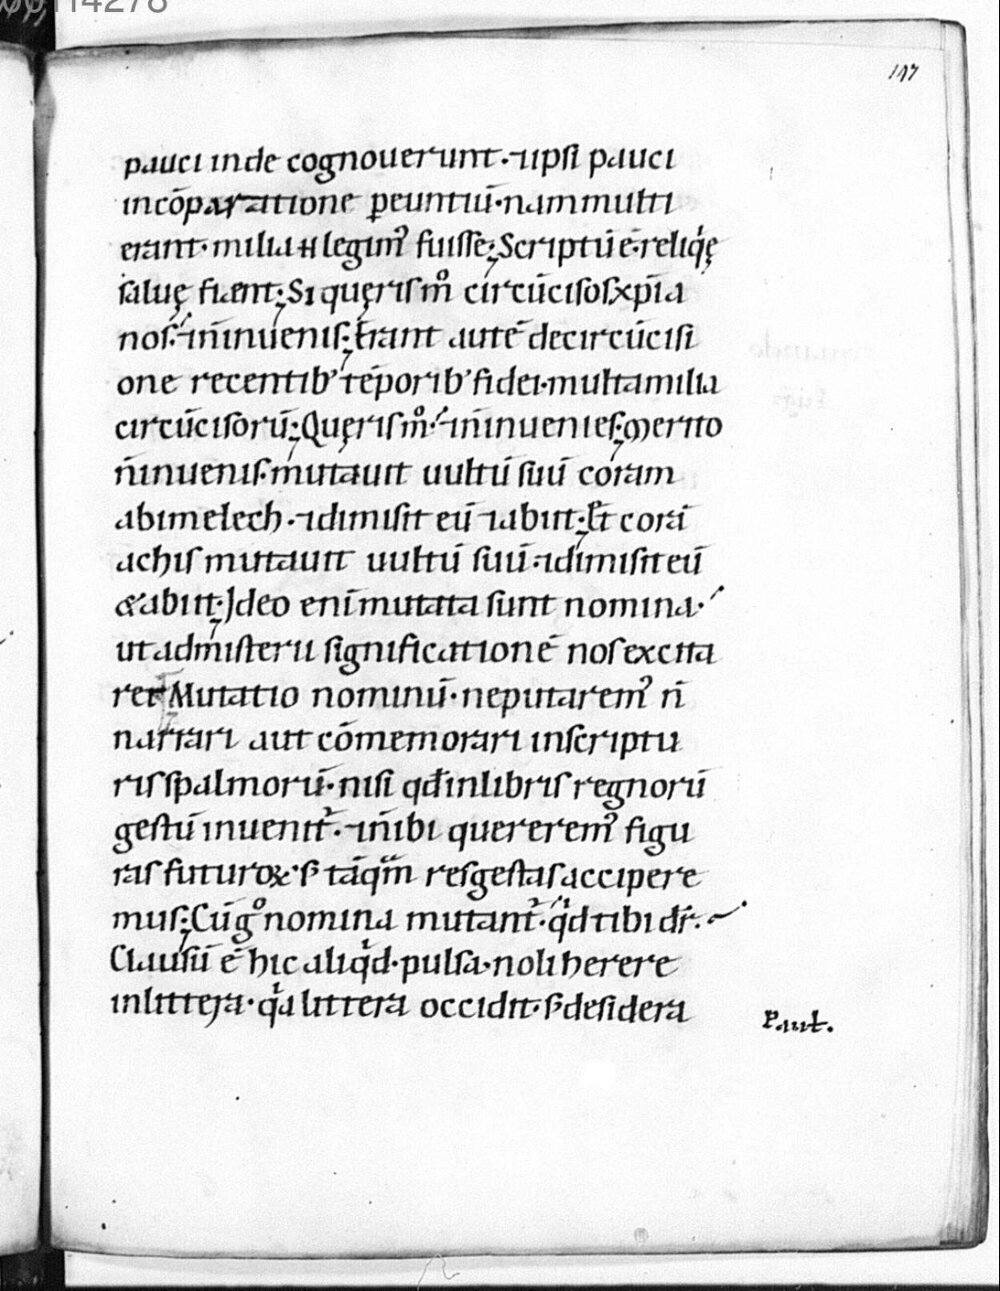 114278
147
pauci inde cognouerunt· ⁊ ipsi pauci
incōparatione ꝑeuntiū· nam multi
erant· milia ħ legimꝰ fuisse; Scriptū ē· reliqͥę
saluę fient; Si quęris mͦ circūcisos xp̄ia
nos· ⁊ n̄ inuenis; Erant autē decircūcisi
one recentibꝰ tēporibꝰ fidei· multa milia
circūcisorū; Quęris mͦ· ⁊ n̄ inuenies; Merito
n̄ inuenis· mutauit uultū suū coram
abimelech· ⁊ dimisit eū ⁊ abiit; Et corā
achis mutauit uultū suū· ⁊ dimisit eū
& abiit; Ideo eni mutata sunt nomina·
ut admisterii significationē nos excita
ret; Mutatio nominū· ne putaremꝰ n̄
narrari aut cōmemorari in scriptu
ris spalmorū· nisi qđ inlibris regnorū
gestū inuenit᷑· ⁊ n̄ ibi quereremꝰ figu
ras futuroꝝ· s; tāqͣm res gestas accipere
mus; Cū gͦ nomina mutant᷑· qͥd tibi dr̄·
Clausū ē hic aliqͥd· pulsa· noli herere
inlittera· qͥa littera occidit· s; desidera
Paul.